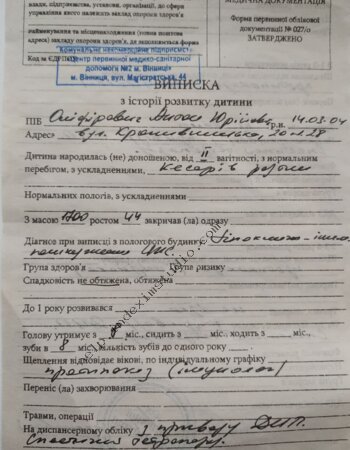 влади, підприємства, установи, організації, до сфери
управління якого належить заклад охорони здоров'я
найменування та місцезнаходження (повна поштова
адреса) закладу охорони здоров'я, де заповнюється форма
комунальне некомерційне підприємство
Код за ЄДРПОУ
"Центр первинної медико-санітарної
допомоги №2 м. Вінниці"
м. Вінниця, вул. Магістратська, 44
МЕДИЧНА ДОКУМЕНТАЦІЯ
Форма первинної облікової
документації № 027/о
ЗАТВЕРДЖЕНО
ВИПИСКА
з історії розвитку дитини
ПІБ Юрійович р.н. 14.03.04
Адреса вул.
Дитина народилась (не) доношеною, від II вагітності, з нормальним
перебігом, з ускладненнями, кесарів розтин
Нормальних пологів, з ускладненнями
З масою 1700 ростом 44 закричав (ла) одразу
Діагноз при виписці з пологового будинку
ЦНС.
Група здоров'я Група ризику
Спадковість не обтяжена, обтяжена
До 1 року розвивався
Голову утримує з міс., сидить з міс., ходить з міс.,
зуби в 8 міс., кількість зубів до одного року
Щеплення відповідає вікові, по індивідуальному графіку
Переніс (ла) захворювання
Травми, операції
На диспансерному обліку з приводу ДЦП.